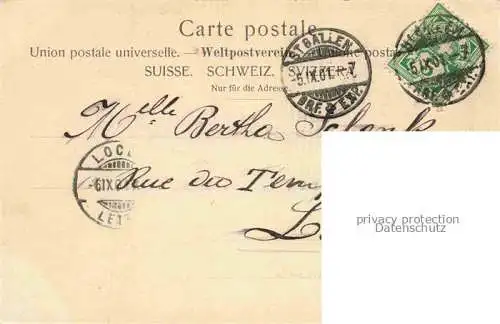 Carte postale.
Union postale universelle. — Weltpostverein. postale
SUISSE. SCHWEIZ. SVIZZERA.
Nur für die Adresse.
ST. GALLEN
5.IX.01. 7
BRF. EXP.
ST. GALLEN
5.IX.01. 7
BRF. EXP.
Melle Bertha
LOC
6IX
LET
Rue du Temp
L
privacy protection
Datenschutz